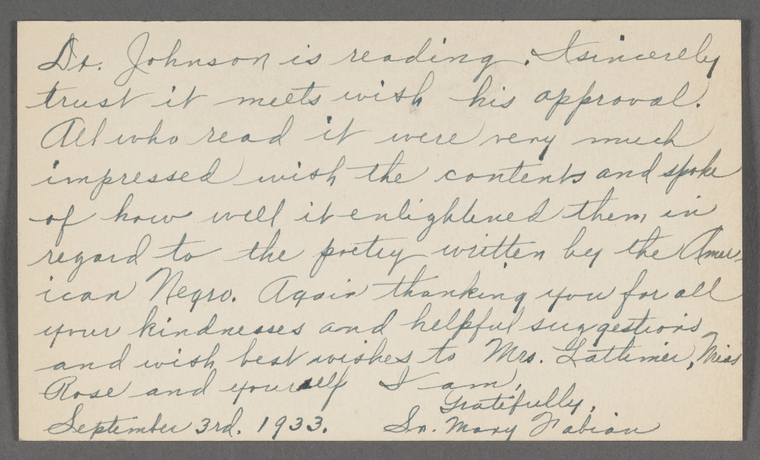 Dr. Johnson is reading. I sincerely
trust it meets with his approval.
All who read it were very much
impressed with the contents and spoke
of how well it enlightened them in
regard to the poetry written by the Amer-
ican Negro. Again thanking you for all
your kindnesses and helpful suggestions
and with best wishes to Mrs. Lattimer, Miss
Rose and yourself I am,
Gratefully,
September 3rd. 1933. Sr. Mary Fabian